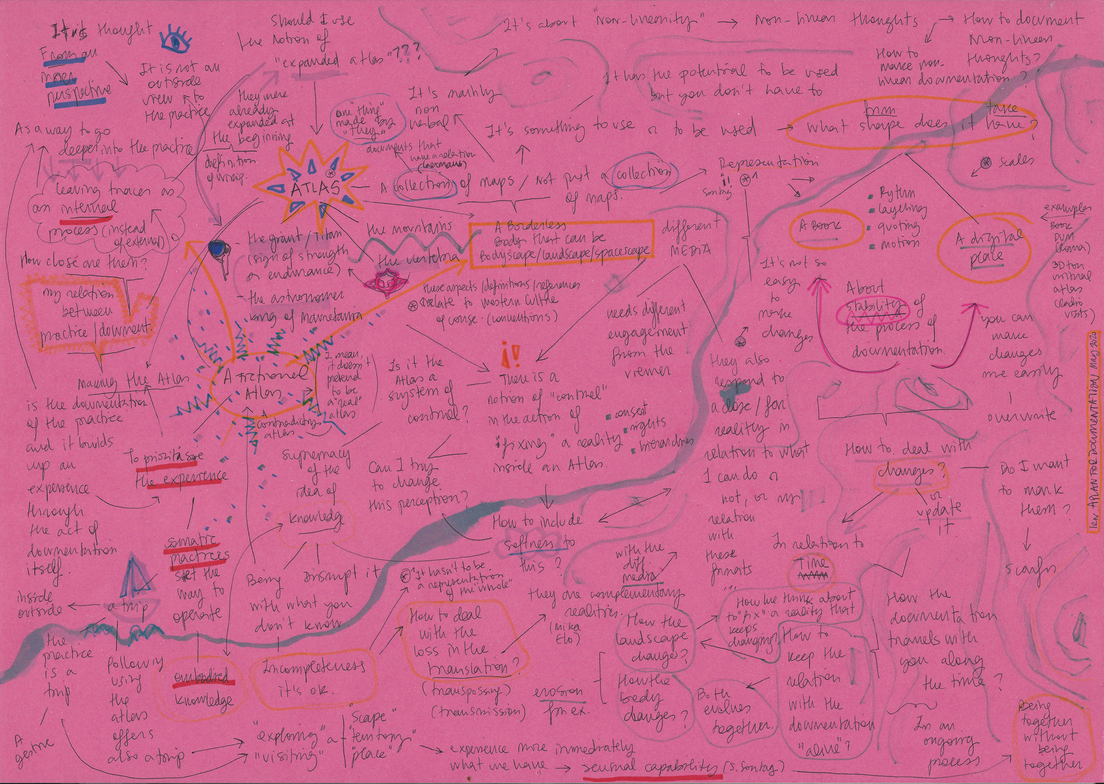 It is thought
From an
inner
perspective
It is not an
outside
view to
the practice
As a way to go
deeper into the practice
leaving traces as
an internal
process (instead
of external)
How close are them?
my relation
between
practice / document.
making the Atlas
is the documentation
of the practice
and it builds
up an
experience
through
the act of
documentation
itself.
Should I use
the notion of
"expanded atlas"???
they were
already
expanded at
the beginning
definition
ATLAS
are things
made by
"they"
It is mainly
non
verbal
documents that
have a relation
A collection of maps / Not just a collection
of maps.
It's about "non-linearity" → Non-linear thoughts → How to document
Non-linear
thoughts?
How to
make non-
linear documentation?
It has the potential to be used
but you don't have to
It's something to use or to be used → what shape does it have?
from
take
scales
Representation
the giant / Titan
(sign of strength
or endurance)
- the astronomer
king of mauretania
the mountains
the vertebra
A Borderless
Body that can be
Bodyscape/landscape/spacescape
these aspects/definitions/references
relate to western culture
of course. (conventions)
different
MEDIA
needs different
engagement
from the
viewer
A Book
Rythm
layering
quoting
motion
A digital
place
examples
BOOK
3D tour
virtual
atlas
visits)
It's not so
easy to
make
changes
About
stability of
the process of
documentation
you can
make
changes
more easily
overwrite
A fictional
Atlas
I mean,
it doesn't
pretend
to be
a "real"
atlas
contradictory
atlas
Is it the
Atlas a
system of
control?
There is a
notion of "control"
in the action of
"fixing" a reality
inside an Atlas.
consent
rights
hierarchies
they also
respond to
a close / far
reality in
relation to what
I can do or
not, or my
relation
with
these
formats
To prioritise
the experience
supremacy
of the
idea of
knowledge
Can I try
to change
this perception?
How to include
softness to
this?
How to deal with
changes?
or
update
it
Do I want
to mark
them?
scars
somatic
practices
set the
way to
operate
embodied
knowledge
inside
outside
a trip
the
practice
is a
trip
following
using
the
atlas
offers
also a trip
Being
with what you
don't know
Disrupt it
It hasn't to be
a representation
of the whole
Incompleteness
it's ok.
How to deal
with the
loss in the
translation?
(transposing)
(transmission)
with the
diff
media
they are complementary
realities.
(Mika
Elo)
erosion
for ex.
How the
landscape
changes?
How the
body
changes?
Both
evolves
together
In relation to
Time
How we think about
to "fix" a reality that
keeps
changing?
How to
keep the
relation
with the
documentation
"alive"?
How the
documentation
travels with
you along
the time?
In an
ongoing
process
Being
together
without
being
together
"exploring" a
"visiting"
"scape"
"territory"
"place"
→ experience more immediately
what we have → sensual capability (S. Sontag)